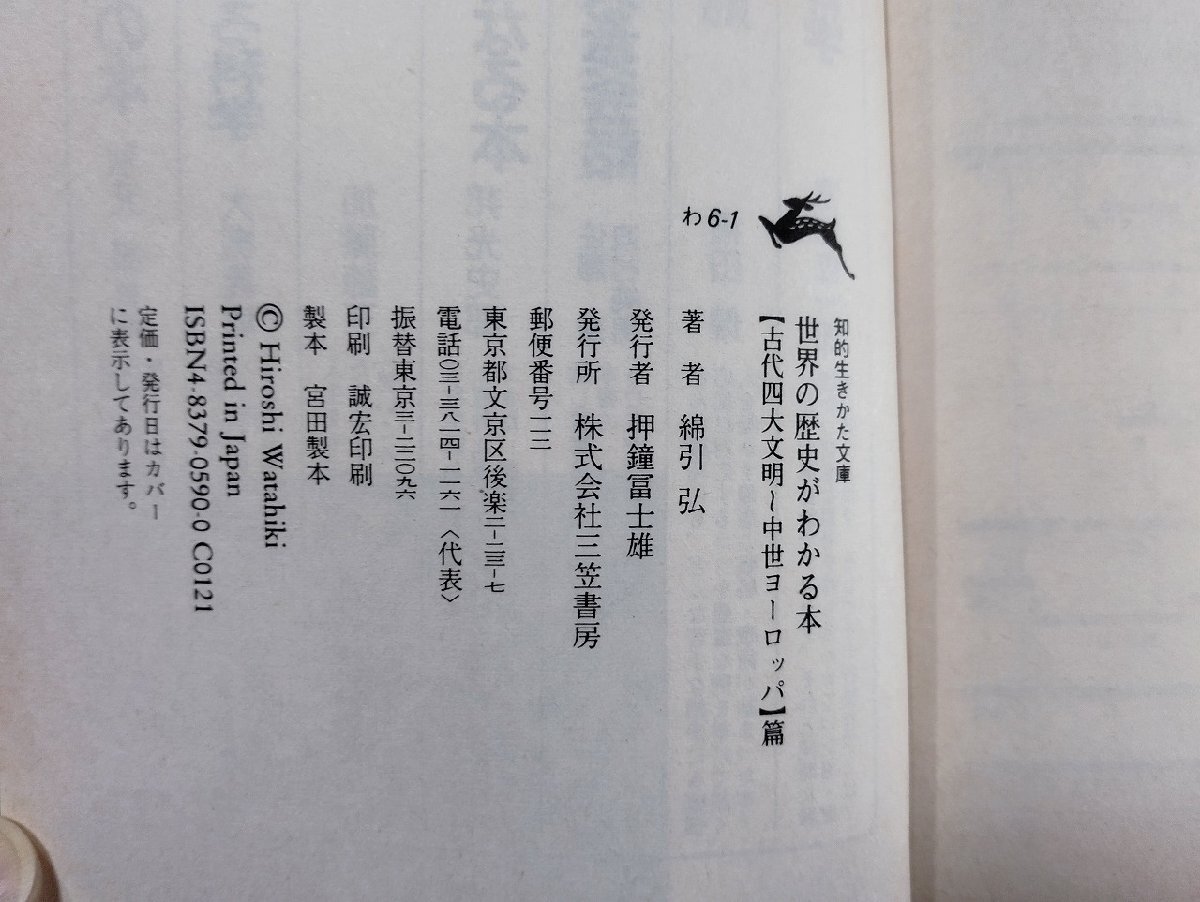 わ6-1
知的生きかた文庫
世界の歴史がわかる本
【古代四大文明〜中世ヨーロッパ】篇
著者 綿引弘
発行者 押鐘冨士雄
発行所 株式会社三笠書房
郵便番号一一二
東京都文京区後楽二-二三-七
電話〇三-三八一四-一一六一〈代表〉
振替東京三-二二〇九六
印刷 誠宏印刷
製本 宮田製本
© Hiroshi Watahiki
Printed in Japan
ISBN4-8379-0590-0 C0121
定価・発行日はカバー
に表示してあります。